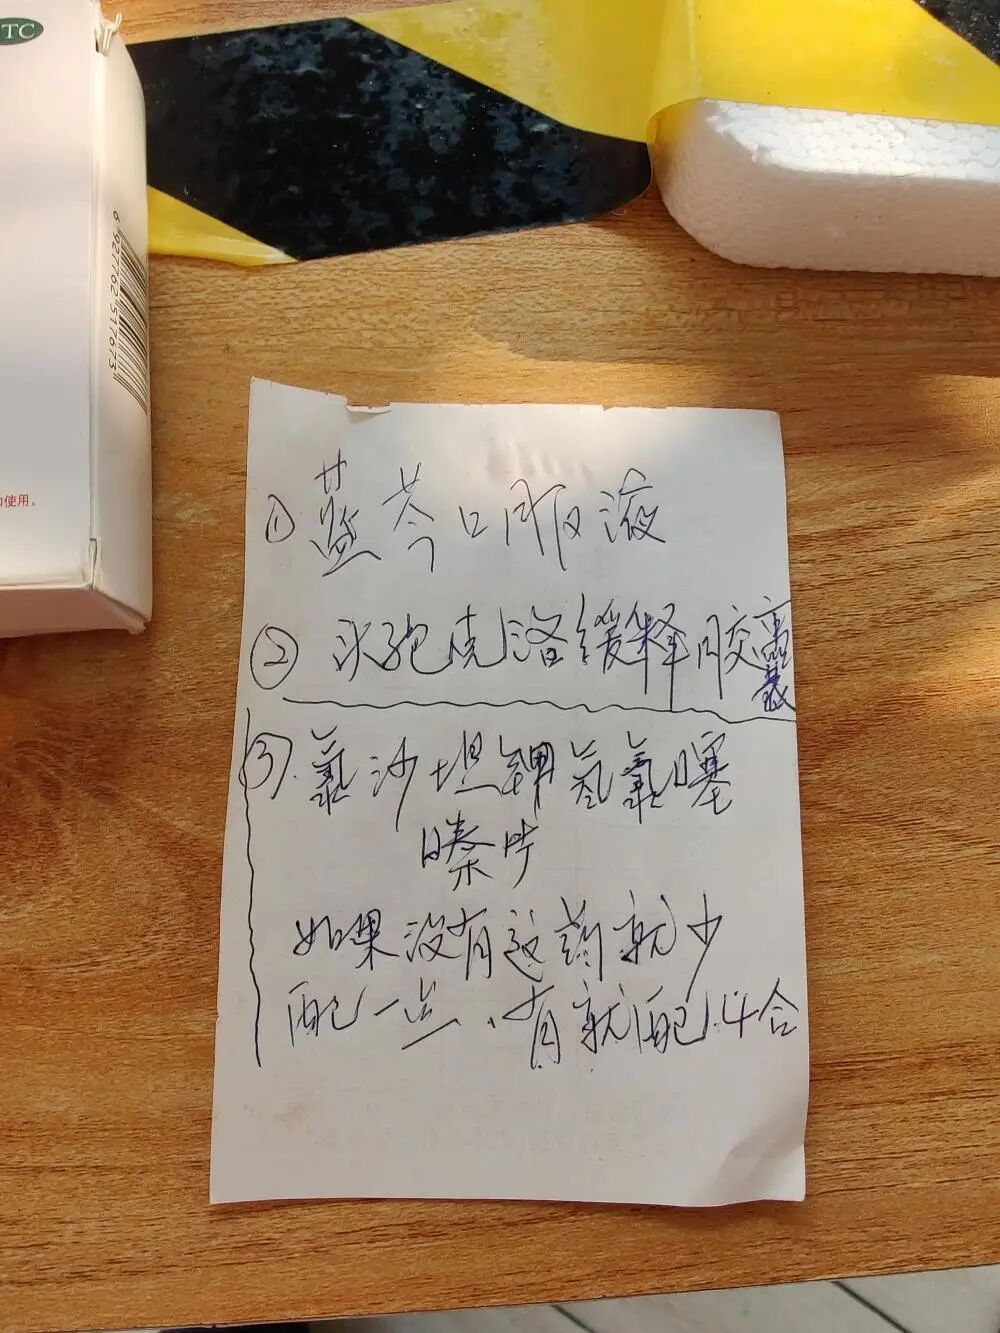 TC
6 927762 517673
使用。
①蓝芩口服液
②头孢克洛缓释胶囊
③氯沙坦钾氢氯噻
嗪片
如果没有这药就少
配一点、有就配4合